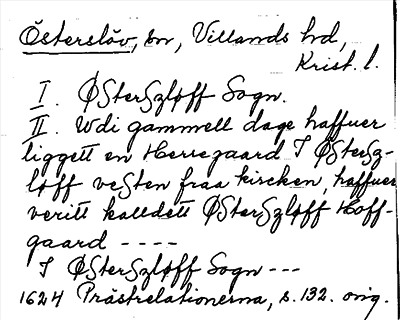 Österslöv, sn, Villands hd,
Krist. l.
I. ØSterSzløff Sogn.
II. Wdi gammell dage haffuer
liggett en Herregaard I ØSterSz-
løff veSten fraa kircken, haffuer
veritt kalldett ØSterSzløff Hoff-
gaard ----
I ØSterSzløff Sogn ---
1624 Prästrelationerna, s. 132. orig.